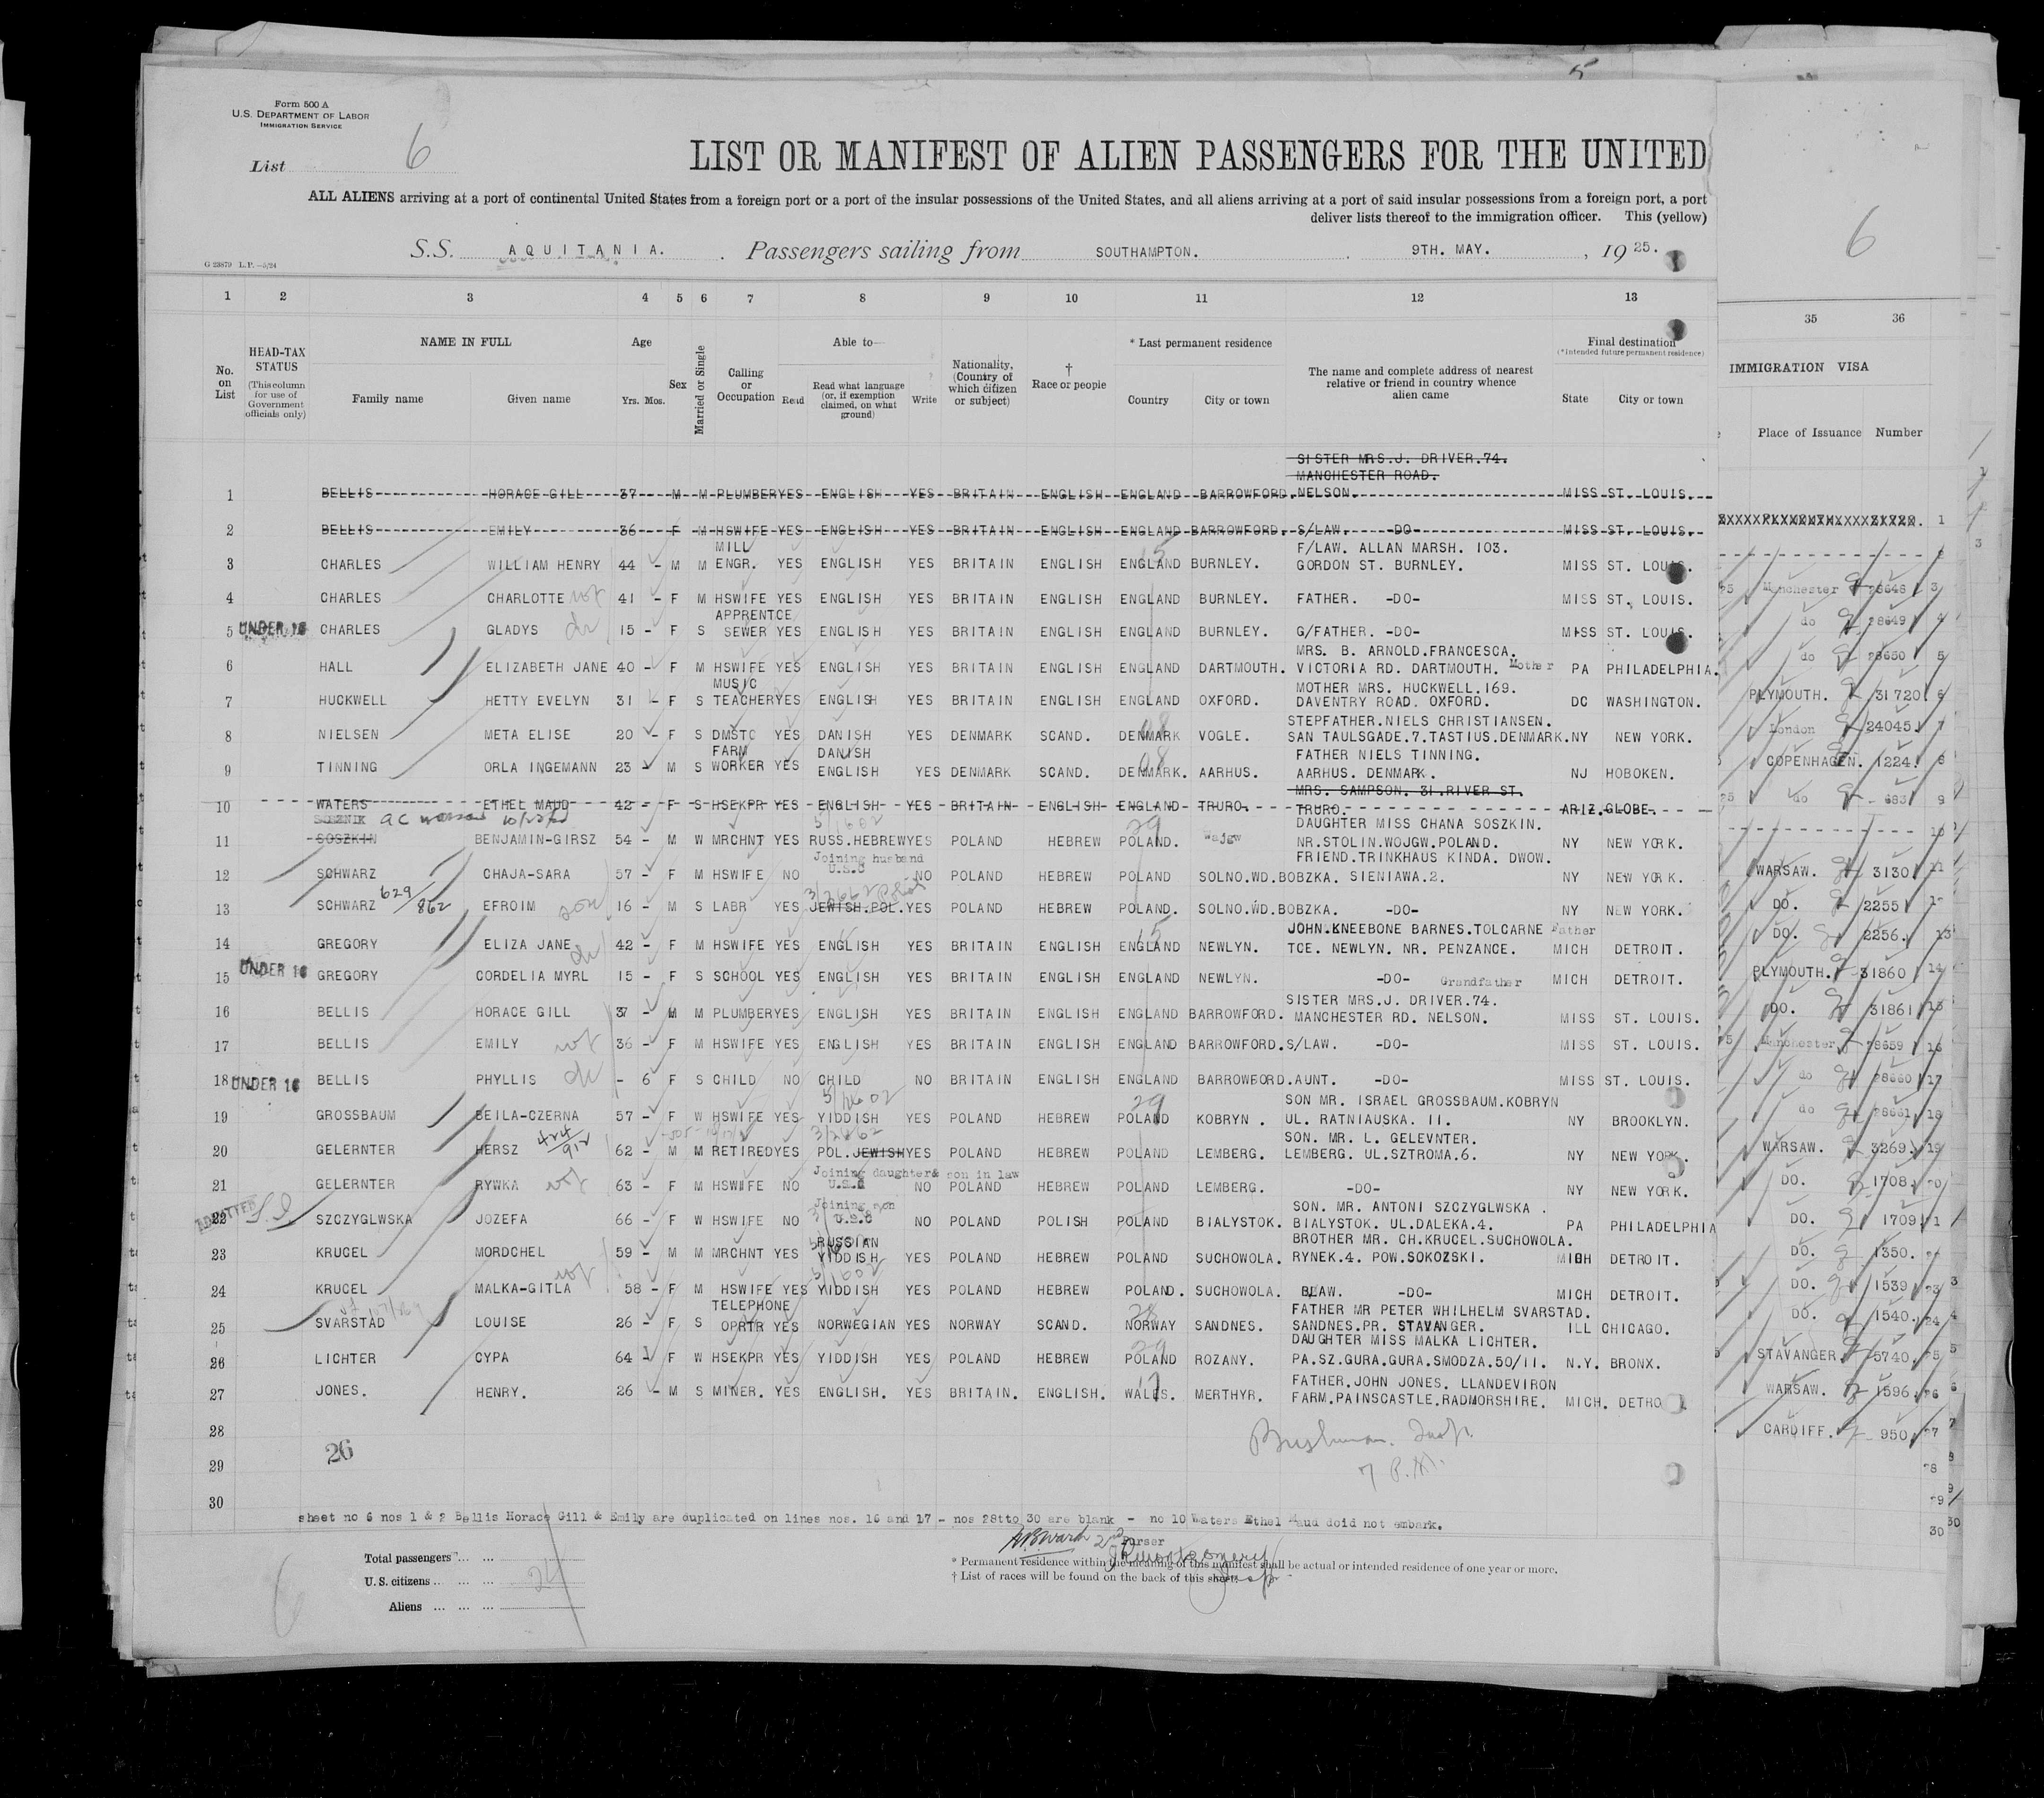 5
Form 500 A
U.S. DEPARTMENT OF LABOR
IMMIGRATION SERVICE
List 6
LIST OR MANIFEST OF ALIEN PASSENGERS FOR THE UNITED
ALL ALIENS arriving at a port of continental United States from a foreign port or a port of the insular possessions of the United States, and all aliens arriving at a port of said insular possessions from a foreign port, a port
deliver lists thereof to the immigration officer. This (yellow)
6
S.S. AQUITANIA. Passengers sailing from SOUTHAMPTON. 9TH. MAY. , 19 25.
G 23879 L.P.—5/24
1 2 3 4 5 6 7 8 9 10 11 12 13
35 36
No. on List
HEAD-TAX STATUS
(This column for use of Government officials only)
NAME IN FULL
Family name Given name
Age
Yrs. Mos.
Sex
Married or Single
Calling or Occupation
Able to—
Read
Read what language (or, if exemption claimed, on what ground)
Write
Nationality, (Country of which citizen or subject)
† Race or people
* Last permanent residence
Country City or town
The name and complete address of nearest relative or friend in country whence alien came
Final destination
(*Intended future permanent residence)
State City or town
IMMIGRATION VISA
Place of Issuance Number
SISTER MRS.J. DRIVER.74.
MANCHESTER ROAD.
1 BELLIS HORACE GILL 37 M M PLUMBER YES ENGLISH YES BRITAIN ENGLISH ENGLAND BARROWFORD. NELSON. MISS ST. LOUIS.
2 BELLIS EMILY 36 F M HSWIFE YES ENGLISH YES BRITAIN ENGLISH ENGLAND BARROWFORD. S/LAW. -DO- MISS ST. LOUIS.
MILL F/LAW. ALLAN MARSH. 103.
3 CHARLES WILLIAM HENRY 44 - M M ENGR. YES ENGLISH YES BRITAIN ENGLISH ENGLAND BURNLEY. GORDON ST. BURNLEY. MISS ST. LOUIS.
4 CHARLES CHARLOTTE 41 - F M HSWIFE YES ENGLISH YES BRITAIN ENGLISH ENGLAND BURNLEY. FATHER. -DO- MISS ST. LOUIS.
APPRENTCE
5 UNDER 16 CHARLES GLADYS 15 - F S SEWER YES ENGLISH YES BRITAIN ENGLISH ENGLAND BURNLEY. G/FATHER. -DO- MISS ST. LOUIS.
MRS. B. ARNOLD.FRANCESCA.
6 HALL ELIZABETH JANE 40 - F M HSWIFE YES ENGLISH YES BRITAIN ENGLISH ENGLAND DARTMOUTH. VICTORIA RD. DARTMOUTH. Mother PA PHILADELPHIA.
MUSIC MOTHER MRS. HUCKWELL.169.
7 HUCKWELL HETTY EVELYN 31 - F S TEACHER YES ENGLISH YES BRITAIN ENGLISH ENGLAND OXFORD. DAVENTRY ROAD. OXFORD. DC WASHINGTON.
STEPFATHER.NIELS CHRISTIANSEN.
8 NIELSEN META ELISE 20 - F S DMSTC YES DANISH YES DENMARK SCAND. DENMARK VOGLE. SAN TAULSGADE.7.TASTIUS.DENMARK. NY NEW YORK.
FARM DANISH FATHER NIELS TINNING.
9 TINNING ORLA INGEMANN 23 - M S WORKER YES ENGLISH YES DENMARK SCAND. DENMARK. AARHUS. AARHUS. DENMARK. NJ HOBOKEN.
MRS. SAMPSON. 31.RIVER ST.
10 WATERS ETHEL MAUD 42 - F S HSEKPR YES ENGLISH YES BRITAIN ENGLISH ENGLAND TRURO. TRURO. ARIZ. GLOBE.
DAUGHTER MISS CHANA SOSZKIN.
11 SOSZKIN BENJAMIN-GIRSZ 54 - M W MRCHNT YES RUSS.HEBREW YES POLAND HEBREW POLAND. Wajgw NR.STOLIN.WOJGW.POLAND. NY NEW YORK.
Joining husband U.S.C FRIEND.TRINKHAUS KINDA. DWOW.
12 SCHWARZ CHAJA-SARA 57 - F M HSWIFE NO NO POLAND HEBREW POLAND SOLNO.WD.BOBZKA. SIENIAWA.2. NY NEW YORK.
629/862
13 SCHWARZ EFROIM son 16 - M S LABR YES JEWISH.POL. YES POLAND HEBREW POLAND. SOLNO.WD.BOBZKA. -DO- NY NEW YORK.
JOHN.KNEEBONE BARNES.TOLCARNE Father
14 GREGORY ELIZA JANE 42 - F M HSWIFE YES ENGLISH YES BRITAIN ENGLISH ENGLAND NEWLYN. TCE. NEWLYN. NR. PENZANCE. MICH DETROIT.
15 UNDER 16 GREGORY CORDELIA MYRL 15 - F S SCHOOL YES ENGLISH YES BRITAIN ENGLISH ENGLAND NEWLYN. -DO- Grandfather MICH DETROIT.
SISTER MRS.J. DRIVER.74.
16 BELLIS HORACE GILL 37 - M M PLUMBER YES ENGLISH YES BRITAIN ENGLISH ENGLAND BARROWFORD. MANCHESTER RD. NELSON. MISS ST. LOUIS.
17 BELLIS EMILY 36 - F M HSWIFE YES ENGLISH YES BRITAIN ENGLISH ENGLAND BARROWFORD. S/LAW. -DO- MISS ST. LOUIS.
18 UNDER 16 BELLIS PHYLLIS - 6 F S CHILD NO CHILD NO BRITAIN ENGLISH ENGLAND BARROWFORD. AUNT. -DO- MISS ST. LOUIS.
SON MR. ISRAEL GROSSBAUM.KOBRYN
19 GROSSBAUM BEILA-CZERNA 57 - F W HSWIFE YES YIDDISH YES POLAND HEBREW POLAND KOBRYN . UL. RATNIAUSKA. 11. NY BROOKLYN.
424/912 SON. MR. L. GELEVNTER.
20 GELERNTER HERSZ 62 - M M RETIRED YES POL.JEWISH YES POLAND HEBREW POLAND LEMBERG. LEMBERG. UL.SZTROMA.6. NY NEW YORK.
Joining daughter& son in law U.S.C
21 GELERNTER RYWKA 63 - F M HSWIFE NO NO POLAND HEBREW POLAND LEMBERG. -DO- NY NEW YORK.
Joining son U.S.C SON. MR. ANTONI SZCZYGLWSKA .
22 ADMITTED SZCZYGLWSKA JOZEFA 66 - F W HSWIFE NO NO POLAND POLISH POLAND BIALYSTOK. BIALYSTOK. UL.DALEKA.4. PA PHILADELPHIA
RUSSIAN BROTHER MR. CH.KRUCEL.SUCHOWOLA.
23 KRUCEL MORDCHEL 59 - M M MRCHNT YES YIDDISH YES POLAND HEBREW POLAND SUCHOWOLA. RYNEK.4. POW.SOKOZSKI. MICH DETROIT.
24 KRUCEL MALKA-GITLA 58 - F M HSWIFE YES YIDDISH YES POLAND HEBREW POLAND. SUCHOWOLA. BLAW. -DO- MICH DETROIT.
TELEPHONE FATHER MR PETER WHILHELM SVARSTAD.
25 SVARSTAD LOUISE 26 - F S OPRTR YES NORWEGIAN YES NORWAY SCAND. NORWAY SANDNES. SANDNES.PR. STAVANGER. ILL CHICAGO.
DAUGHTER MISS MALKA LICHTER.
26 LICHTER CYPA 64 - F W HSEKPR YES YIDDISH YES POLAND HEBREW POLAND ROZANY. PA.SZ.GURA.GURA.SMODZA.50/11. N.Y. BRONX.
FATHER.JOHN JONES. LLANDEVIRON
27 JONES. HENRY. 26 - M S MINER. YES ENGLISH. YES BRITAIN. ENGLISH. WALES. MERTHYR. FARM.PAINSCASTLE.RADMORSHIRE. MICH. DETRO
28
26
29
7 P.M.
30
Manchester 28648 3
do 28649 4
do 28650 5
PLYMOUTH. 31720. 6
London 24045 7
COPENHAGEN. 1224. 8
do 683 9
WARSAW. 3130 11
DO. 2255
DO. 2256. 13
PLYMOUTH. 31860 14
DO. 31861 15
Manchester 28659 16
do 28660 17
do 28661 18
WARSAW. 3269. 19
DO. 1708. 20
DO. 1709 21
DO. 1350.
DO. 1539 23
DO. 1540. 24
STAVANGER. 5740. 25
WARSAW. 1596. 26
CARDIFF. 950 27
28
29
30
sheet no 6 nos 1 & 2 Bellis Horace Gill & Emily are duplicated on lines nos. 16 and 17 - nos 28tto 30 are blank - no 10 Waters Ethel Maud doid not embark.
2nd Purser
Total passengers
U.S. citizens
Aliens
6
* Permanent residence within the meaning of this manifest shall be actual or intended residence of one year or more.
† List of races will be found on the back of this sheet.